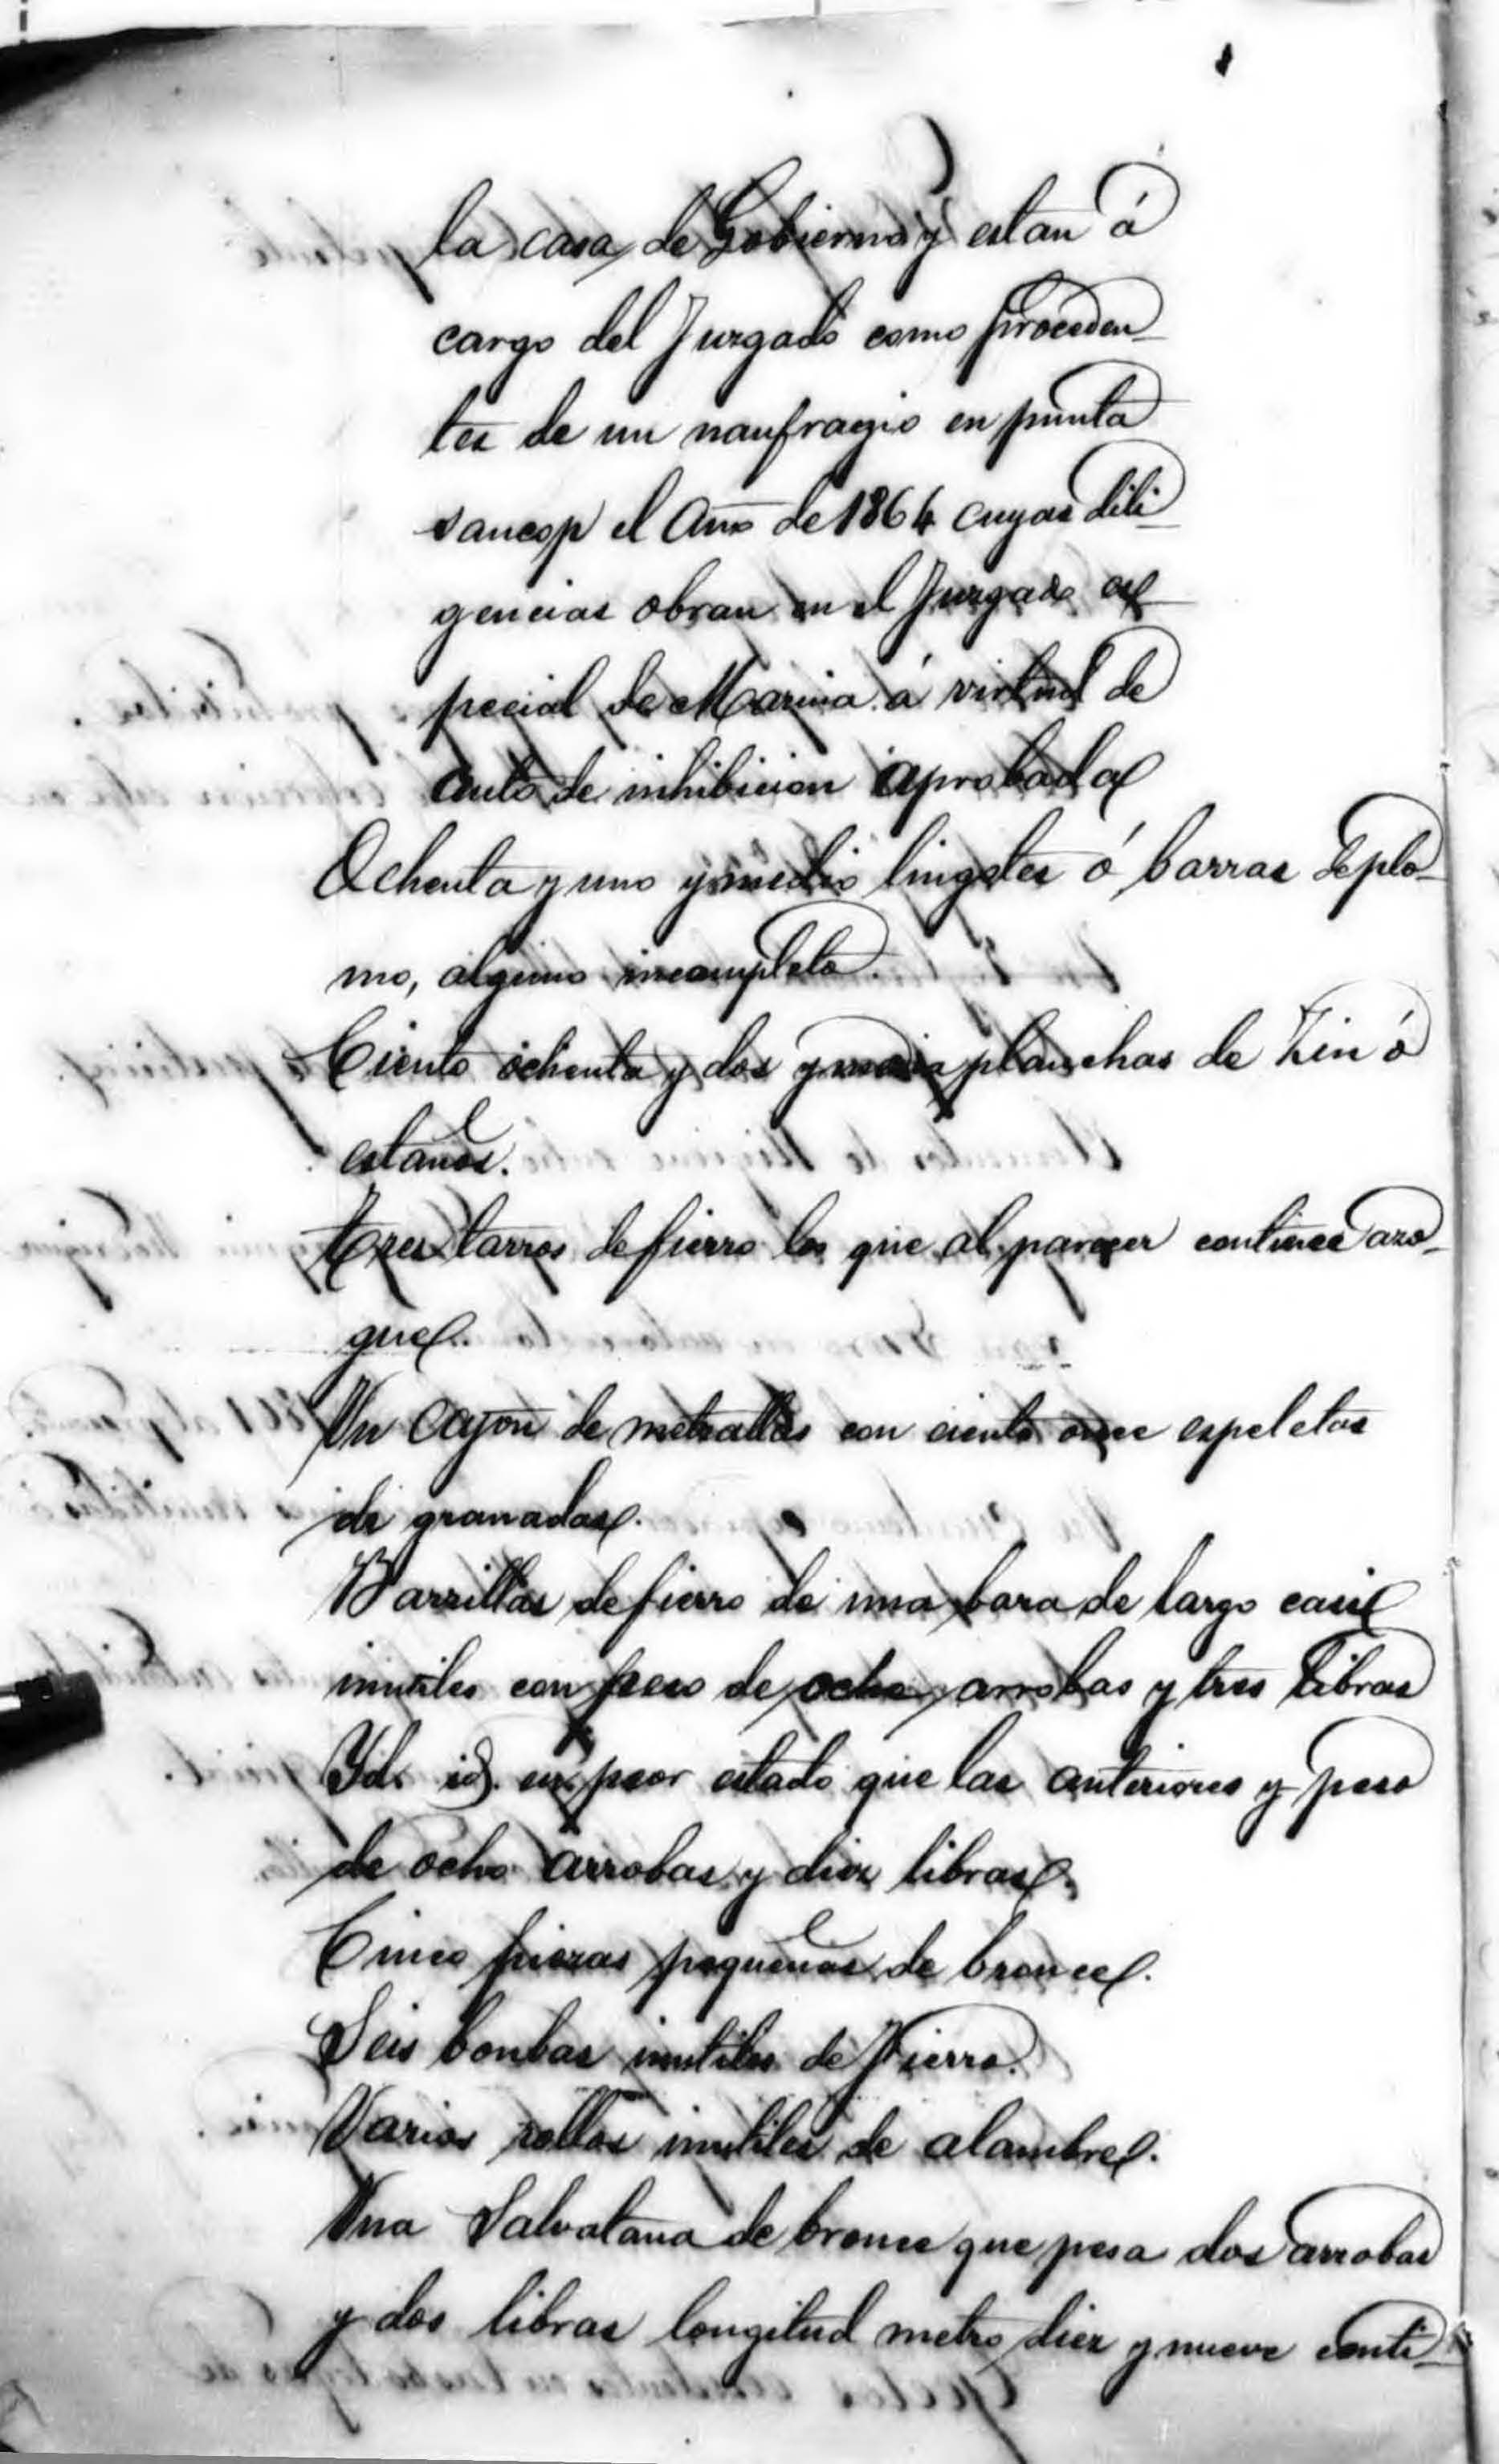 la casa de Gobierno y estan á
cargo del Juzgado como proceden-
tes de un naufragio en punta
el Año de 1864 cuyas dili-
gencias obran en el Juzgado es-
pecial de Marina á virtud de
auto de inhibicion aprobada
Ochenta y uno y medio lingotes ó barras de plo-
mo, alguno incompleto.
Ciento ochenta y dos y media planchas de Zin ó
estaños.
tres tarros de fierro los que al parecer contienen azo-
gue.
Un Cajon de metrallas con ciento once espeletas
de granadas.
Barrillas de fierro de una bara de largo casi
inutiles con peso de ocho arrobas y tres libras
Yd. id. en peor estado que las anteriores y peso
de ocho arrobas y diez libras.
Cinco piezas pequeñas de bronce.
Seis bonbas inutiles de Fierro.
Varios rollos inutiles de alambre.
Una de bronce que pesa dos arrobas
y dos libras longitud metro diez y nueve centi-